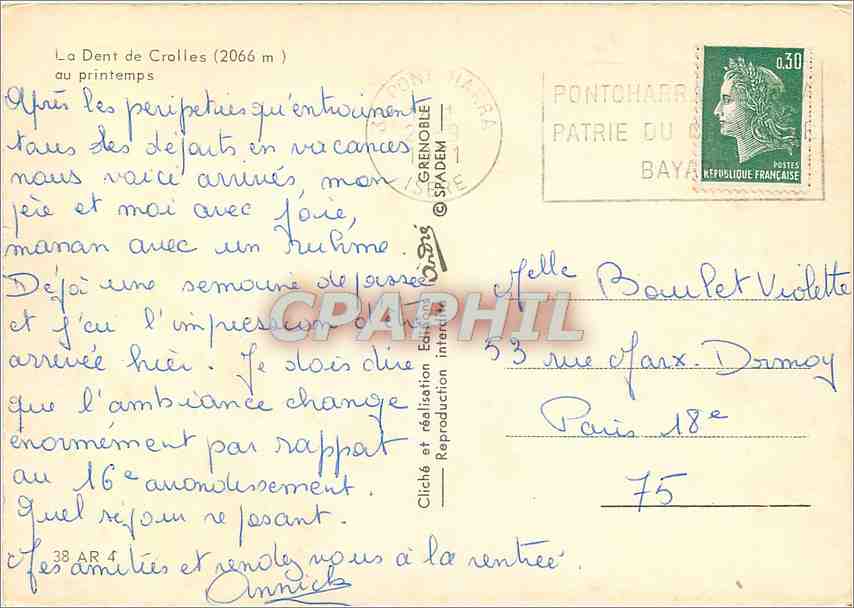 La Dent de Crolles (2066 m)
au printemps
Après les péripéties qu'entrainent
tous les départs en vacances
nous voici arrivés, mon
père et moi avec joie,
maman avec un rhume.
Déjà une semaine de passée
et j'ai l'impression d'être
arrivée hier. Je dois dire
que l'ambiance change
énormément par rapport
au 16e arrondissement.
Quel séjour reposant.
Mes amitiés et rendez vous à la rentrée.
Annick
38 AR 4
Cliché et réalisation Editions André GRENOBLE
Reproduction interdite © SPADEM
ISERE
PONTCHARR
PATRIE DU
BAYARD
0,30
POSTES
RÉPUBLIQUE FRANÇAISE
Melle Boulet Violette
53 rue Marx. Dormoy
Paris 18e
75
CPAPHIL